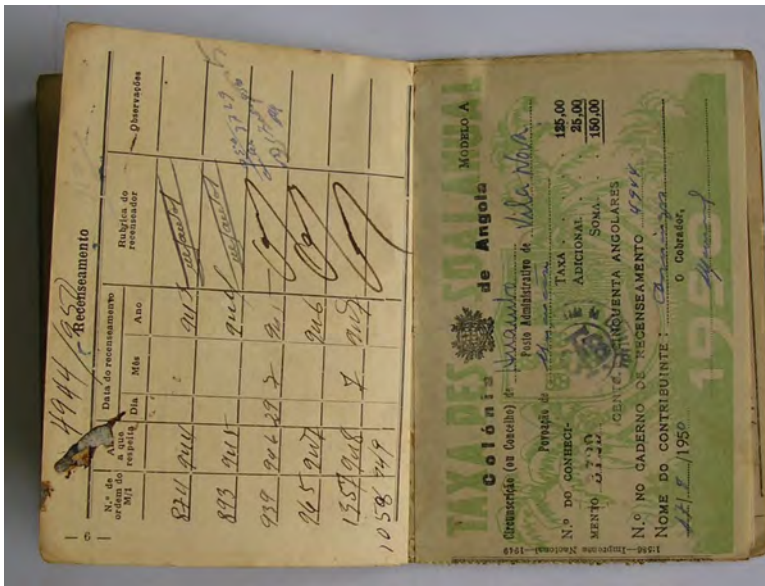 4944/950
Recenseamento
N.º de ordem do M/1
Ano a que respeita
Data do recenseamento
Dia
Mês
Ano
Rubrica do recenseador
Observações
874 944 943
893 945 944
939 946 29 7 945
965 947 946
1357 948 7 947
1058 949
— 6 —
TAXA PESSOAL ANUAL
Colónia de Angola MODELO A
Circunscrição (ou Concelho) de
Posto Administrativo de Vila Nova
Povoação de
N.º DO CONHECI-
MENTO
TAXA 125,00
ADICIONAL 25,00
SOMA 150,00
CENTO E CINQUENTA ANGOLARES
N.º NO CADERNO DE RECENSEAMENTO 4944
NOME DO CONTRIBUINTE:
/1950
O Cobrador,
1950
1:586—Imprensa Nacional—1949